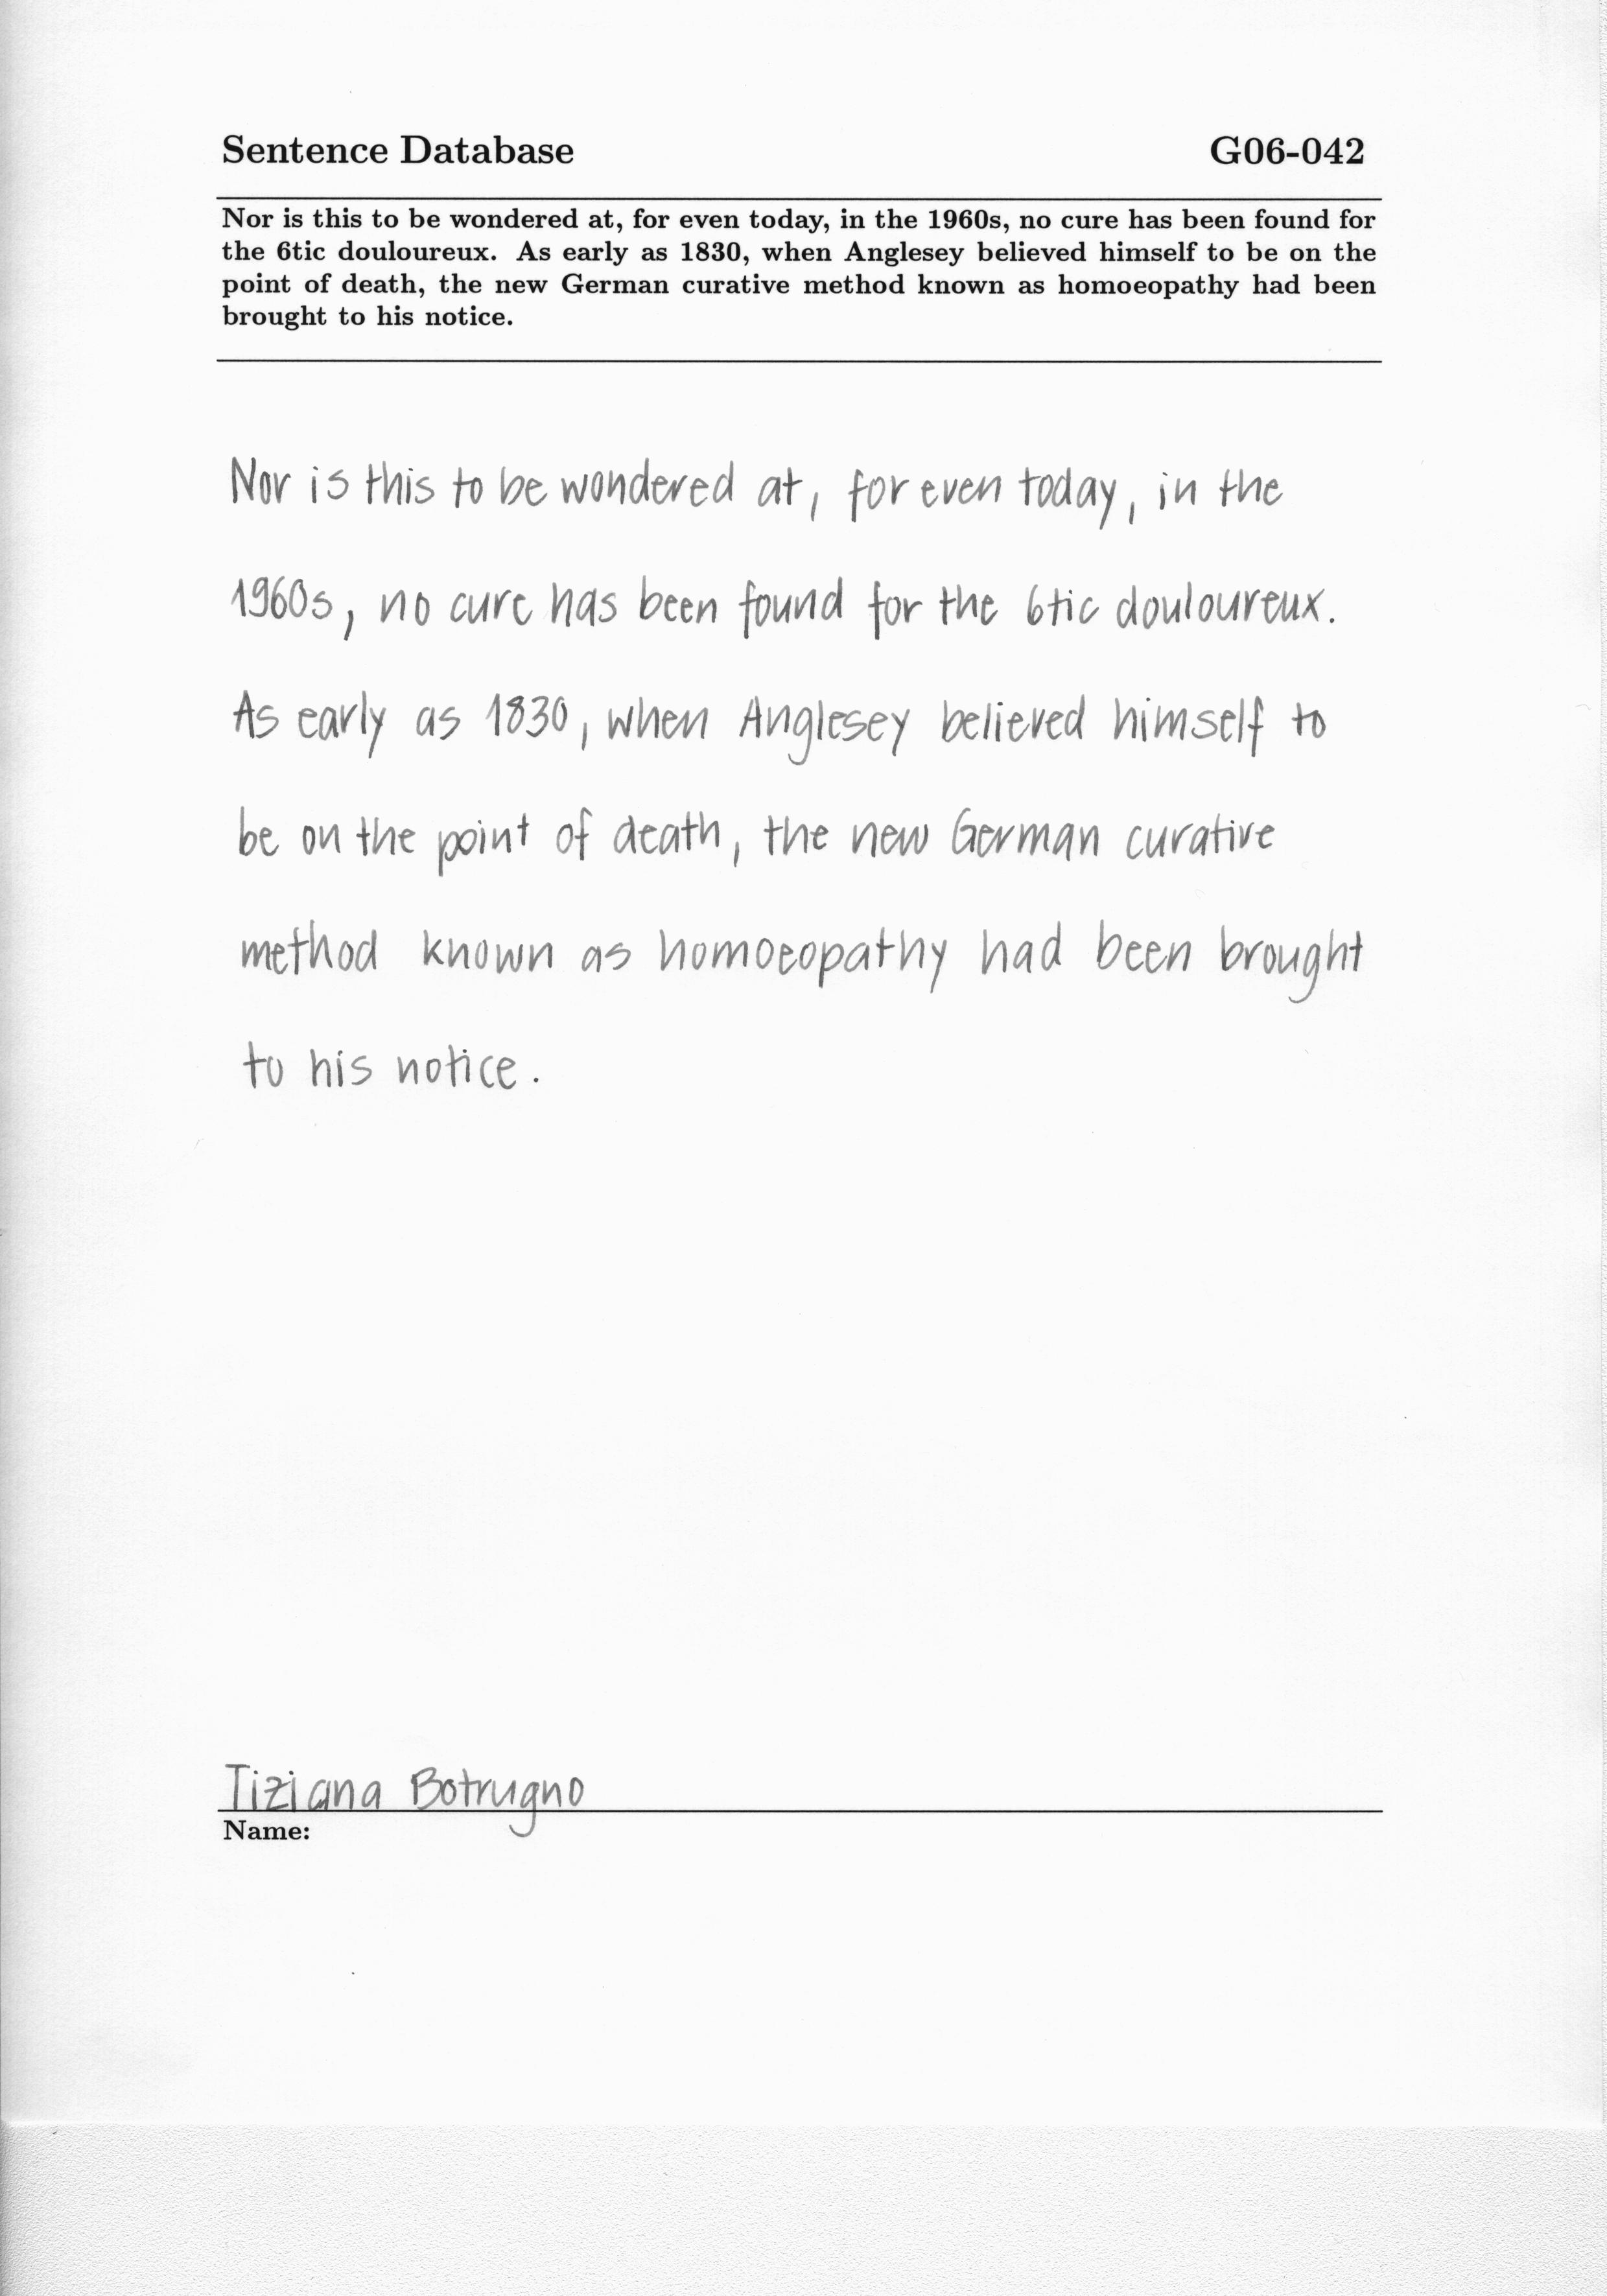 Sentence Database G06-042
Nor is this to be wondered at, for even today, in the 1960s, no cure has been found for
the 6tic douloureux. As early as 1830, when Anglesey believed himself to be on the
point of death, the new German curative method known as homoeopathy had been
brought to his notice.
Nor is this to be wondered at, for even today, in the
1960s, no cure has been found for the 6tic douloureux.
As early as 1830, when Anglesey believed himself to
be on the point of death, the new German curative
method known as homoeopathy had been brought
to his notice.
Tiziana Botrugno
Name: